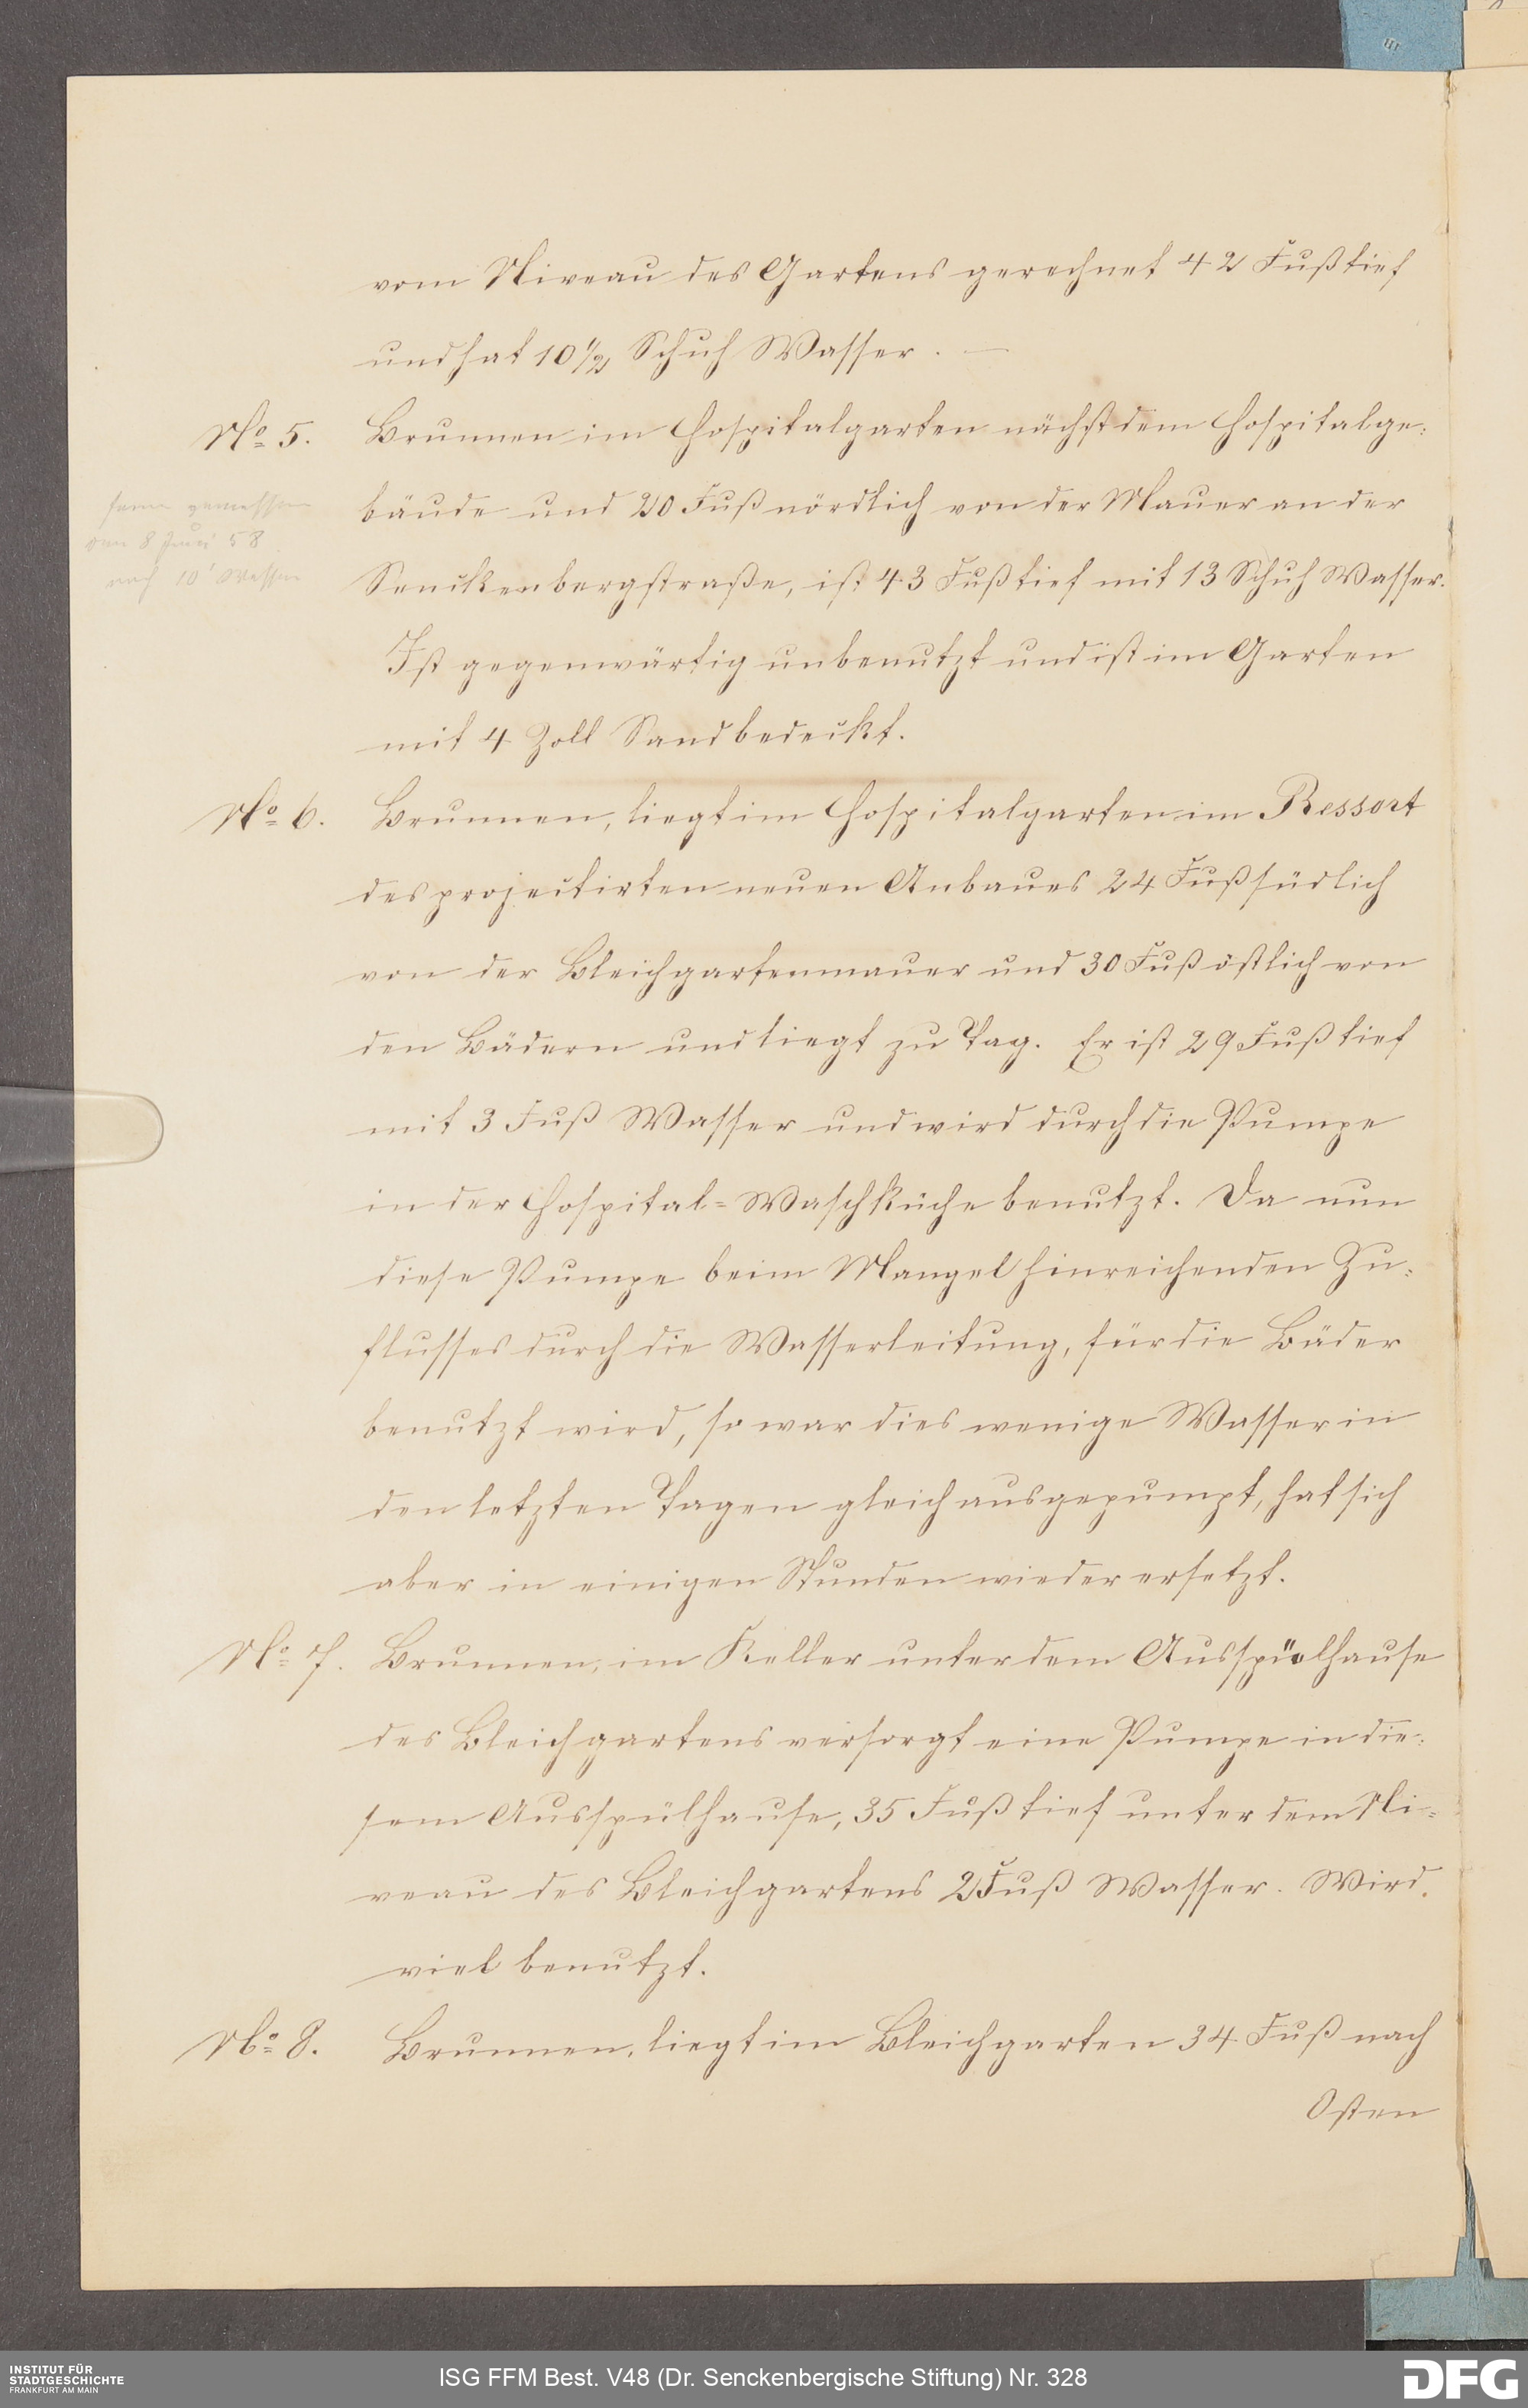 vom Niveau des Gartens gerechnet 42 Fuß tief
und hat 10 1/2 Schuh Wasser. —
No 5. Brunnen im Hospitalgarten nächst dem Hospitalge-
bäude und 20 Fuß nördlich von der Mauer an der
gemessen
den 8 Juni 58
noch 10' Wasser
Senckenbergstraße, ist 43 Fuß tief mit 13 Schuh Wasser.
Ist gegenwärtig unbenutzt und ist im Garten
mit 4 Zoll Sand bedeckt.
No 6. Brunnen, liegt im Hospitalgarten im Ressort
des projectirten neuen Anbaues 24 Fuß südlich
von der Bleichgartenmauer und 30 Fuß östlich von
den Bädern und liegt zu Tag. Er ist 29 Fuß tief
mit 3 Fuß Wasser und wird durch die Pumpe
in der Hospital-Waschküche benutzt. Da nun
diese Pumpe beim Mangel hinreichenden Zu-
flusses durch die Wasserleitung, für die Bäder
benutzt wird, so war dies wenige Wasser in
den letzten Tagen gleich ausgepumpt, hat sich
aber in einigen Stunden wieder ersetzt.
No 7. Brunnen, im Keller unter dem Ausspülhause
des Bleichgartens versorgt eine Pumpe in die-
sem Ausspülhause, 35 Fuß tief unter dem Ni-
veau des Bleichgartens 2 Fuß Wasser. Wird
viel benutzt.
No 8. Brunnen, liegt im Bleichgarten 34 Fuß nach
Osten
INSTITUT FÜR
STADTGESCHICHTE
FRANKFURT AM MAIN
ISG FFM Best. V48 (Dr. Senckenbergische Stiftung) Nr. 328
DFG